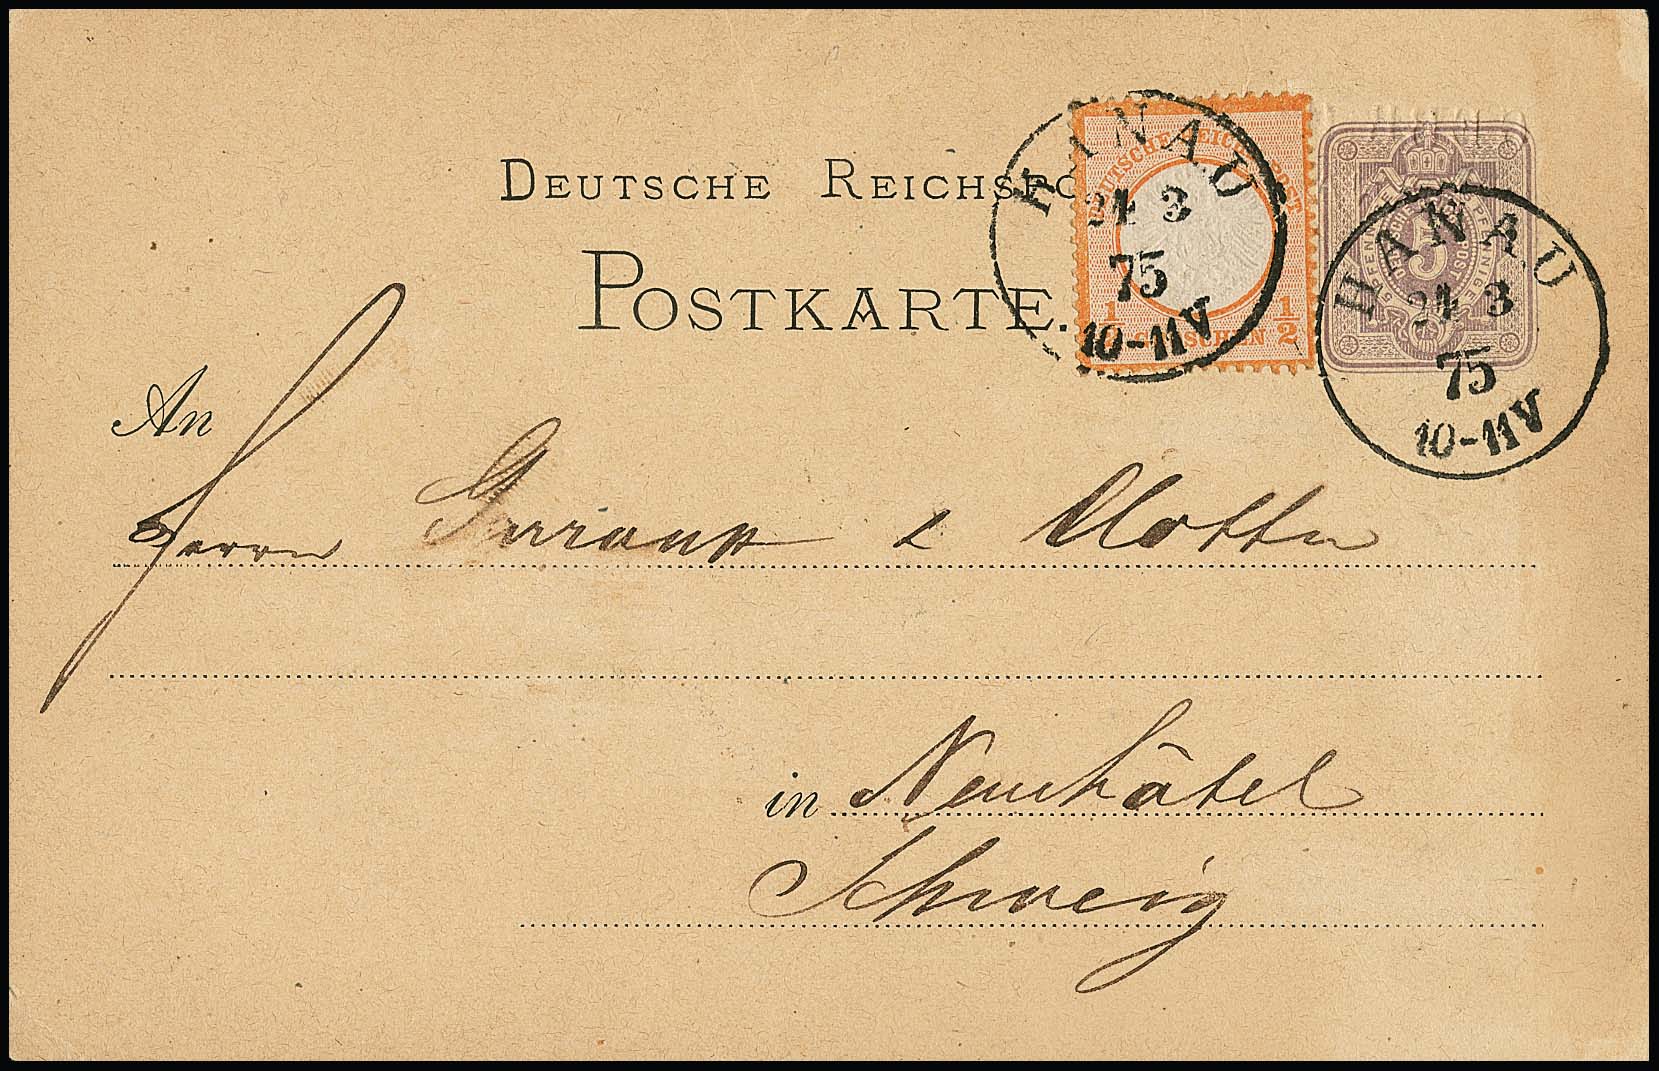 DEUTSCHE REICHSPO
POSTKARTE.
HANAU
24 3
75
10-11V
DEUTSCHE REICHS-POST
1/2 GROSCHEN 1/2
HANAU
24 3
75
10-11V
5
An
Herrn & Motta
in Neuchâtel
Schweiz